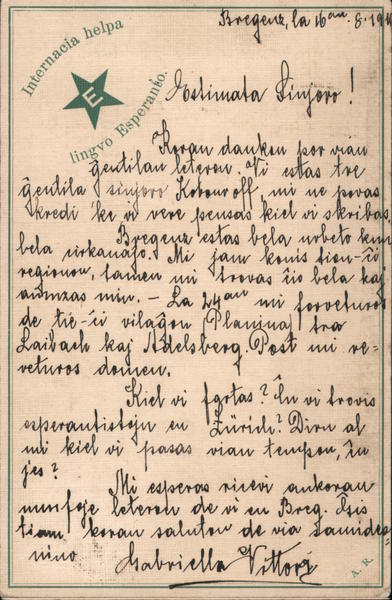 Internacia helpa
lingvo Esperanto.
E
Bregenz, la 16an 8. 19
Estimata Sinjoro!
Koran dankon por vian
gentilan leteron. Vi estas tre
gentila sinjoro Kotouroff, mi ne povas
kredi ke vi vere pensas kiel vi skribas.
Bregenz estas bela urbeto kun
bela cirkauajo. Mi jam konis tion-ĉi
regionon, tamen mi trovas ĉio bela kaj
amuzas min. – La 24an mi forveturos
de tie-ĉi vilaĝon (Planina) tra
Laibach kaj Adelsberg. Post mi re-
veturos domen.
Kiel vi fartas? Ĉu vi trovis
esperantistojn en Zürich? Diru al
mi kiel vi pasas vian tempon, ĉu
jes?
Mi esperas ricevi ankoraŭ
unufoje leteron de vi en Breg. Ĝis
tiam koran saluton de via samide-
anino
Gabriella Vittori
A. R.